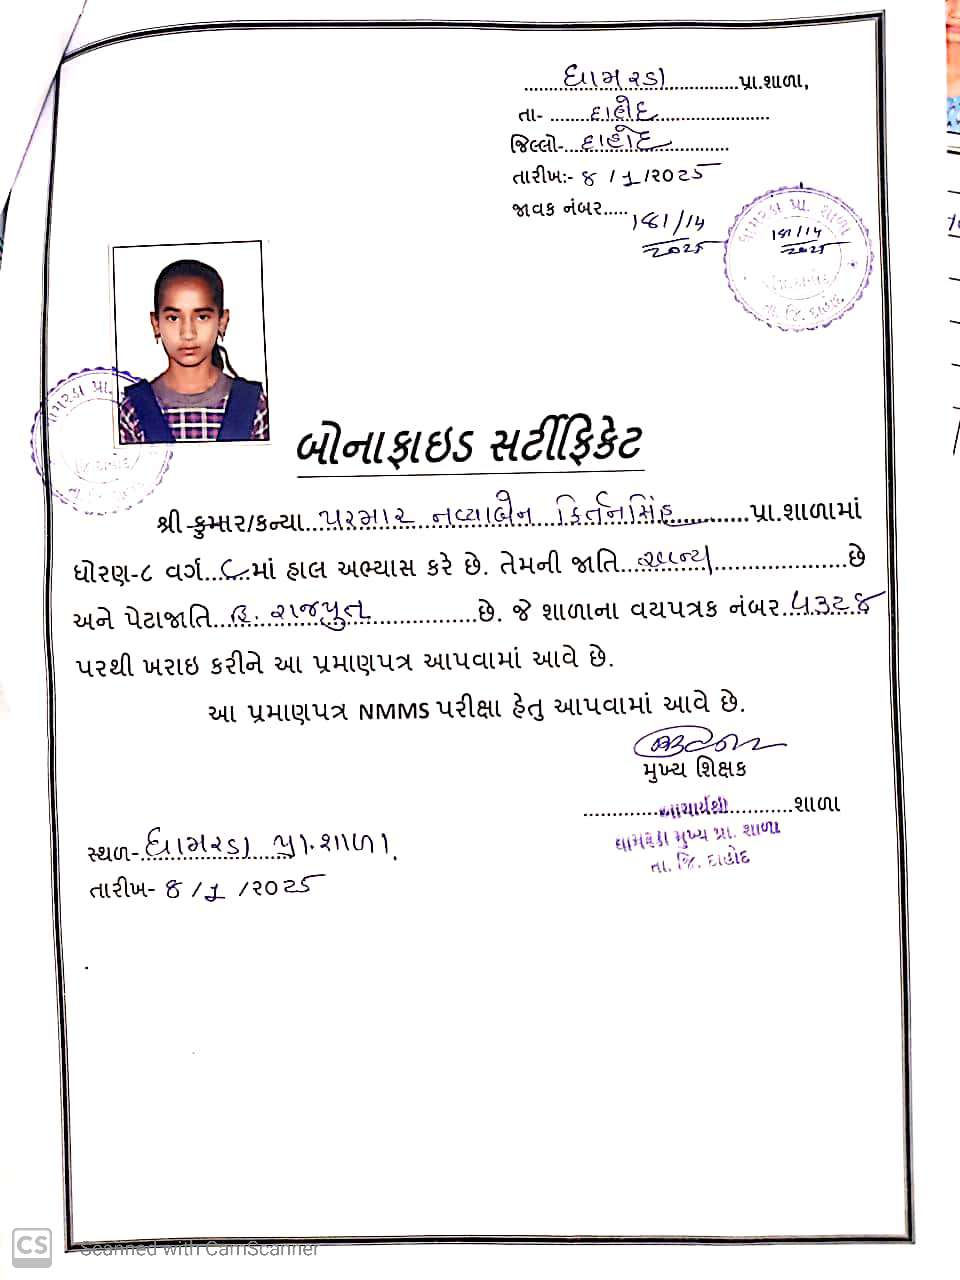 ધામરડા પ્રા.શાળા,
તા- દાહોદ
જિલ્લો- દાહોદ
તારીખ:- ૪ /1 /૨૦૨5
જાવક નંબર..... 181/14
2025
181/14
2025
તા. જિ. દાહોદ
બોનાફાઇડ સર્ટીફિકેટ
શ્રી-કુમાર/કન્યા પરમાર નવ્યાબેન કિર્તનસિંહ પ્રા.શાળામાં
ધોરણ-૮ વર્ગ...૮...માં હાલ અભ્યાસ કરે છે. તેમની જાતિ અન્ય છે
અને પેટાજાતિ હિ. રાજપુત છે. જે શાળાના વયપત્રક નંબર ૫૩૨૪
પરથી ખરાઇ કરીને આ પ્રમાણપત્ર આપવામાં આવે છે.
આ પ્રમાણપત્ર NMMS પરીક્ષા હેતુ આપવામાં આવે છે.
મુખ્ય શિક્ષક
આચાર્યશ્રી શાળા
ધામરડા મુખ્ય પ્રા. શાળા
તા. જિ. દાહોદ
સ્થળ- ધામરડા પ્રા.શાળા.
તારીખ- ૪ /1 /૨૦૨5
CS Scanned with CamScanner